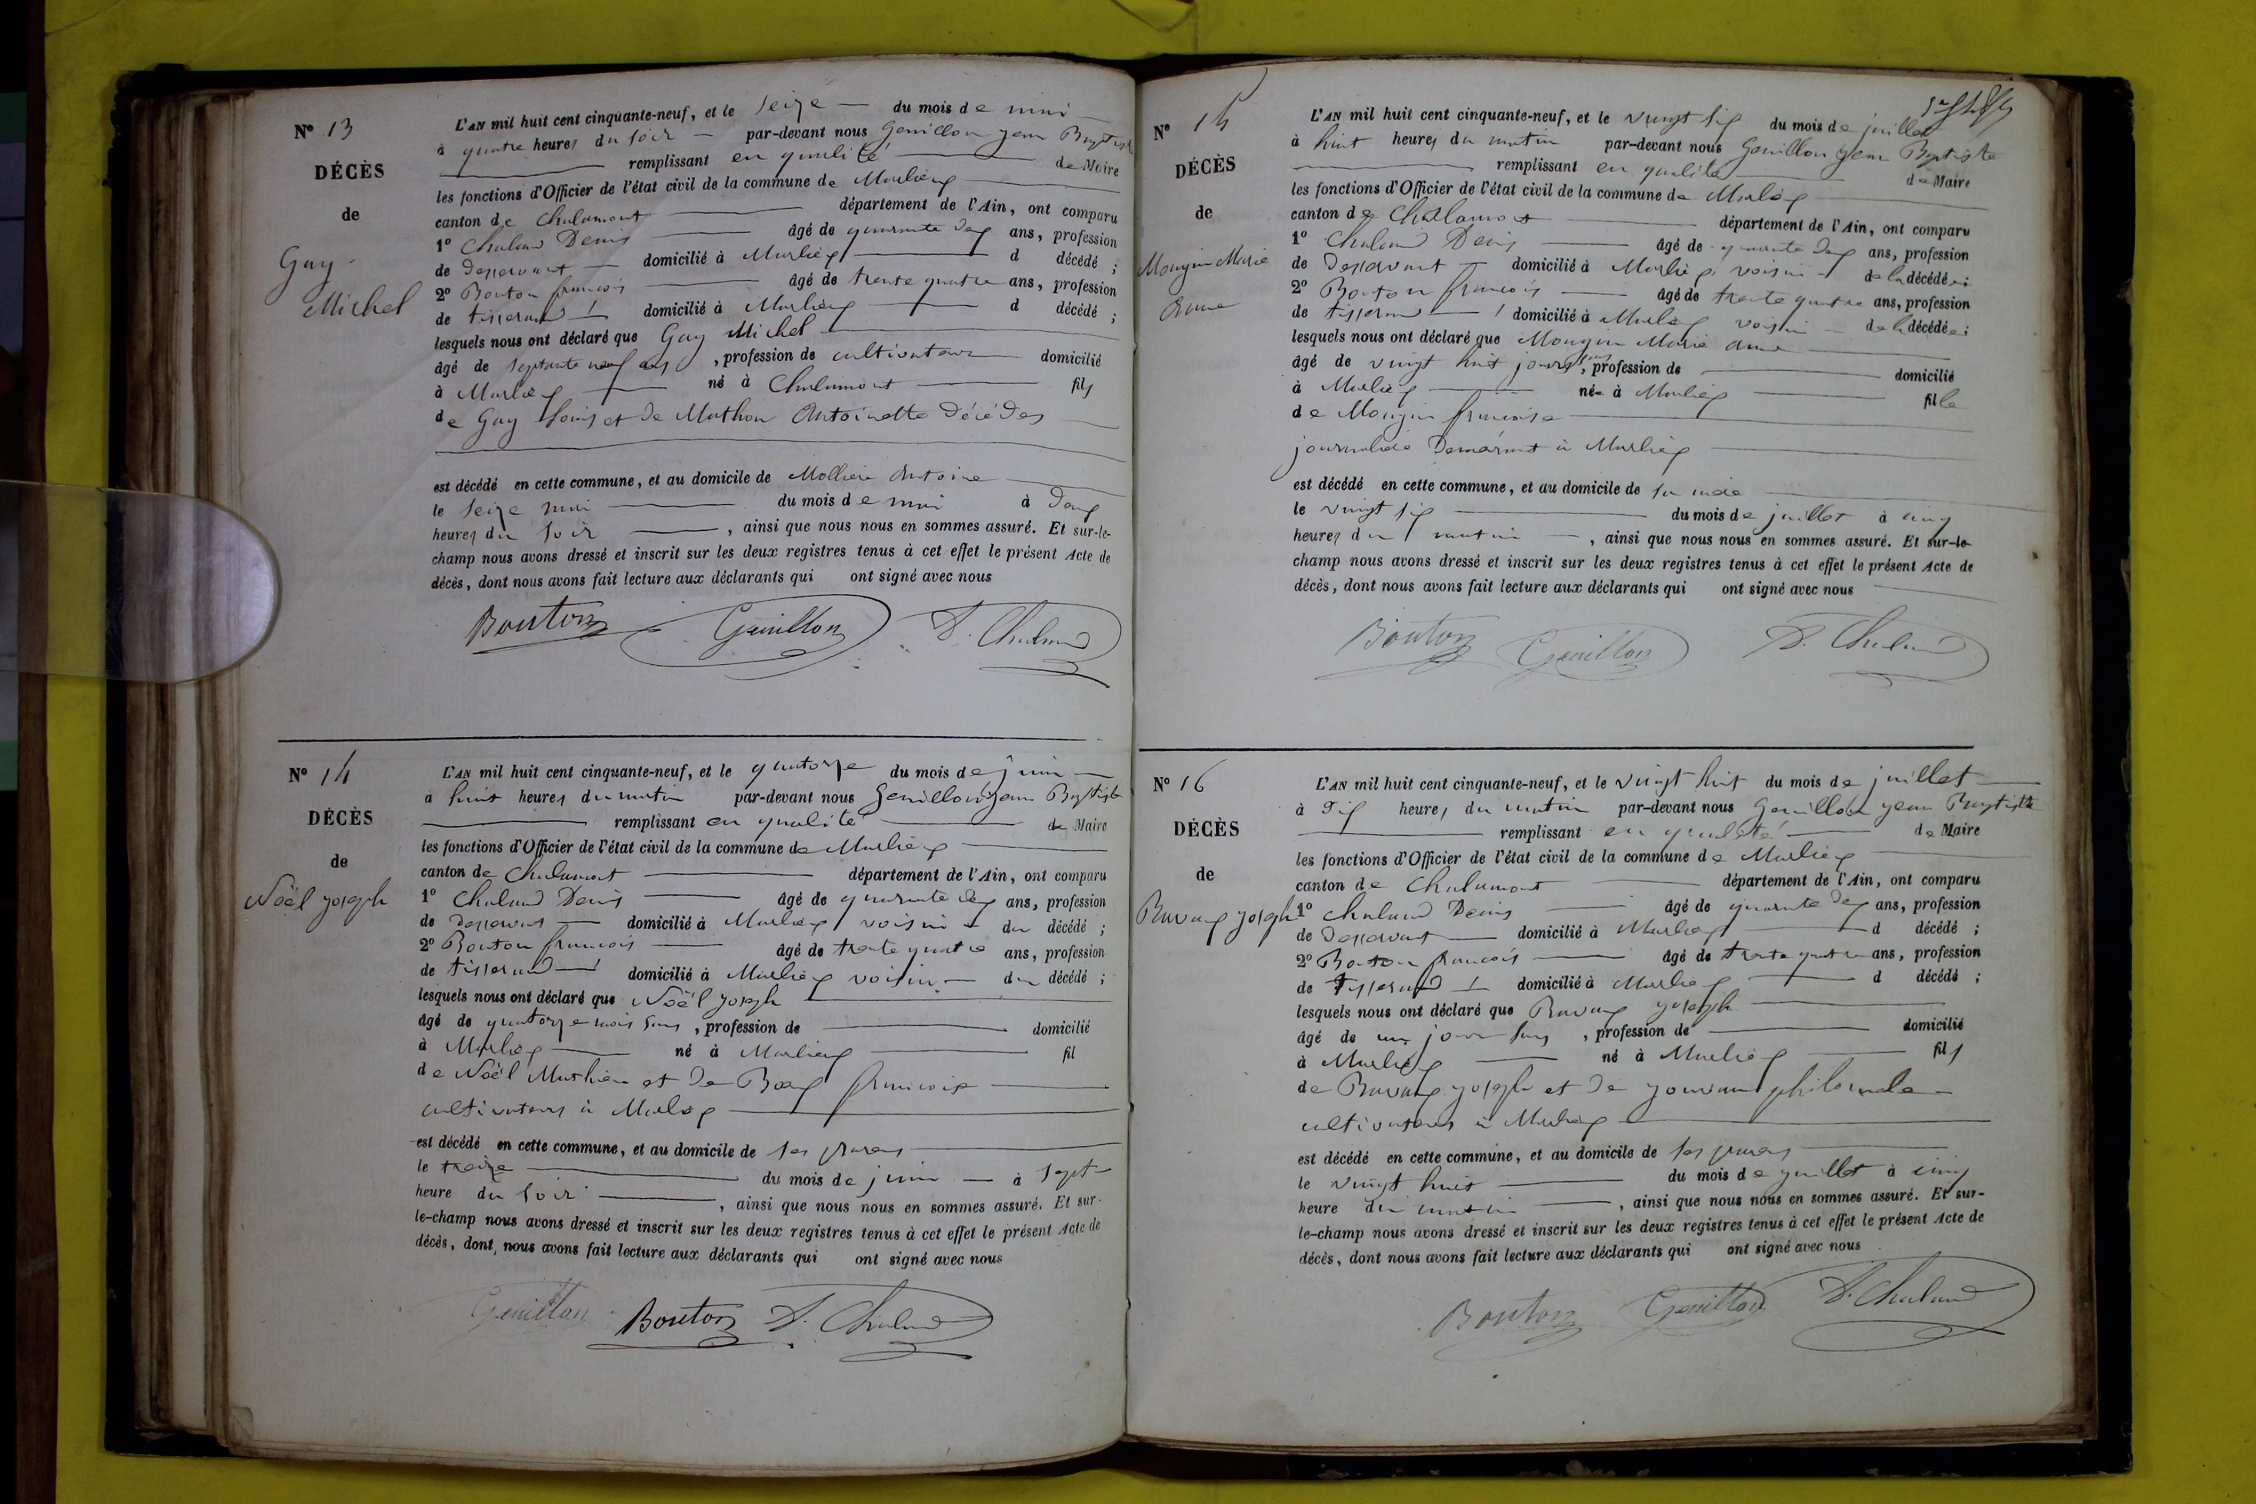 N° 13
DÉCÈS
de
Guy
Michel
L'AN mil huit cent cinquante-neuf, et le seize du mois de mai
à quatre heures du soir par-devant nous Genillon jean Baptiste
remplissant en qualité de Maire
les fonctions d'Officier de l'état civil de la commune de Marlieux
canton de Chalamont département de l'Ain, ont comparu
1° Chaland Denis âgé de quarante deux ans, profession
de desservant domicilié à Marlieux d décédé ;
2° Bouton francois âgé de trente quatre ans, profession
de tisserand domicilié à Marlieux d décédé ;
lesquels nous ont déclaré que Guy Michel
âgé de septante neuf ans , profession de cultivateur domicilié
à Marlieux né à Chalamont fils
de Guy Louis et de Mathon Antoinette décédés
est décédé en cette commune, et au domicile de Molliere Antoine
le seize mai du mois de mai à deux
heures du soir , ainsi que nous nous en sommes assuré. Et sur-le-
champ nous avons dressé et inscrit sur les deux registres tenus à cet effet le présent Acte de
décès, dont nous avons fait lecture aux déclarants qui ont signé avec nous
Bouton Genillon D. Chaland
N° 14
DÉCÈS
de
Noël joseph
L'AN mil huit cent cinquante-neuf, et le quatorze du mois de juin
à huit heures du matin par-devant nous Genillon jean Baptiste
remplissant en qualité de Maire
les fonctions d'Officier de l'état civil de la commune de Marlieux
canton de Chalamont département de l'Ain, ont comparu
1° Chaland Denis âgé de quarante deux ans, profession
de desservant domicilié à Marlieux voisin du décédé ;
2° Bouton francois âgé de trente quatre ans, profession
de tisserand domicilié à Marlieux voisin du décédé ;
lesquels nous ont déclaré que Noël joseph
âgé de quatorze mois sans , profession de domicilié
à Marlieux né à Marlieux fil
de Noël Mathieu et de Boeuf francoise
cultivateurs à Marlieux
est décédé en cette commune, et au domicile de ses parens
le treize du mois de juin à sept
heure du soir , ainsi que nous nous en sommes assuré. Et sur-
le-champ nous avons dressé et inscrit sur les deux registres tenus à cet effet le présent Acte de
décès, dont nous avons fait lecture aux déclarants qui ont signé avec nous
Genillon Bouton D. Chaland
N° 15
DÉCÈS
de
Mongin Marie
Anne
L'AN mil huit cent cinquante-neuf, et le vingt six du mois de juillet
à huit heures du matin par-devant nous Genillon jean Baptiste
remplissant en qualité de Maire
les fonctions d'Officier de l'état civil de la commune de Marlieux
canton de Chalamont département de l'Ain, ont comparu
1° Chaland Denis âgé de quarante deux ans, profession
de desservant domicilié à Marlieux voisin de la décédée ;
2° Bouton francois âgé de trente quatre ans, profession
de tisserand domicilié à Marlieux voisin de la décédée ;
lesquels nous ont déclaré que Mongin Marie anne
âgé de vingt huit jours sans , profession de domicilié
à Marlieux née à Marlieux fille
de Mongin francoise
journaliere demeurant à Marlieux
est décédé en cette commune, et au domicile de sa mère
le vingt six du mois de juillet à cinq
heures du matin , ainsi que nous nous en sommes assuré. Et sur-le-
champ nous avons dressé et inscrit sur les deux registres tenus à cet effet le présent Acte de
décès, dont nous avons fait lecture aux déclarants qui ont signé avec nous
Bouton Genillon D. Chaland
N° 16
DÉCÈS
de
joseph
L'AN mil huit cent cinquante-neuf, et le vingt huit du mois de juillet
à dix heures du matin par-devant nous Genillon jean Baptiste
remplissant en qualité de Maire
les fonctions d'Officier de l'état civil de la commune de Marlieux
canton de Chalamont département de l'Ain, ont comparu
1° Chaland Denis âgé de quarante deux ans, profession
de desservant domicilié à Marlieux d décédé ;
2° Bouton francois âgé de trente quatre ans, profession
de tisserand domicilié à Marlieux d décédé ;
lesquels nous ont déclaré que joseph
âgé de un jour sans , profession de domicilié
à Marlieux né à Marlieux fils
de joseph et de philomele
cultivateurs à Marlieux
est décédé en cette commune, et au domicile de ses parens
le vingt huit du mois de juillet à cinq
heure du matin , ainsi que nous nous en sommes assuré. Et sur-
le-champ nous avons dressé et inscrit sur les deux registres tenus à cet effet le présent Acte de
décès, dont nous avons fait lecture aux déclarants qui ont signé avec nous
Bouton Genillon D. Chaland